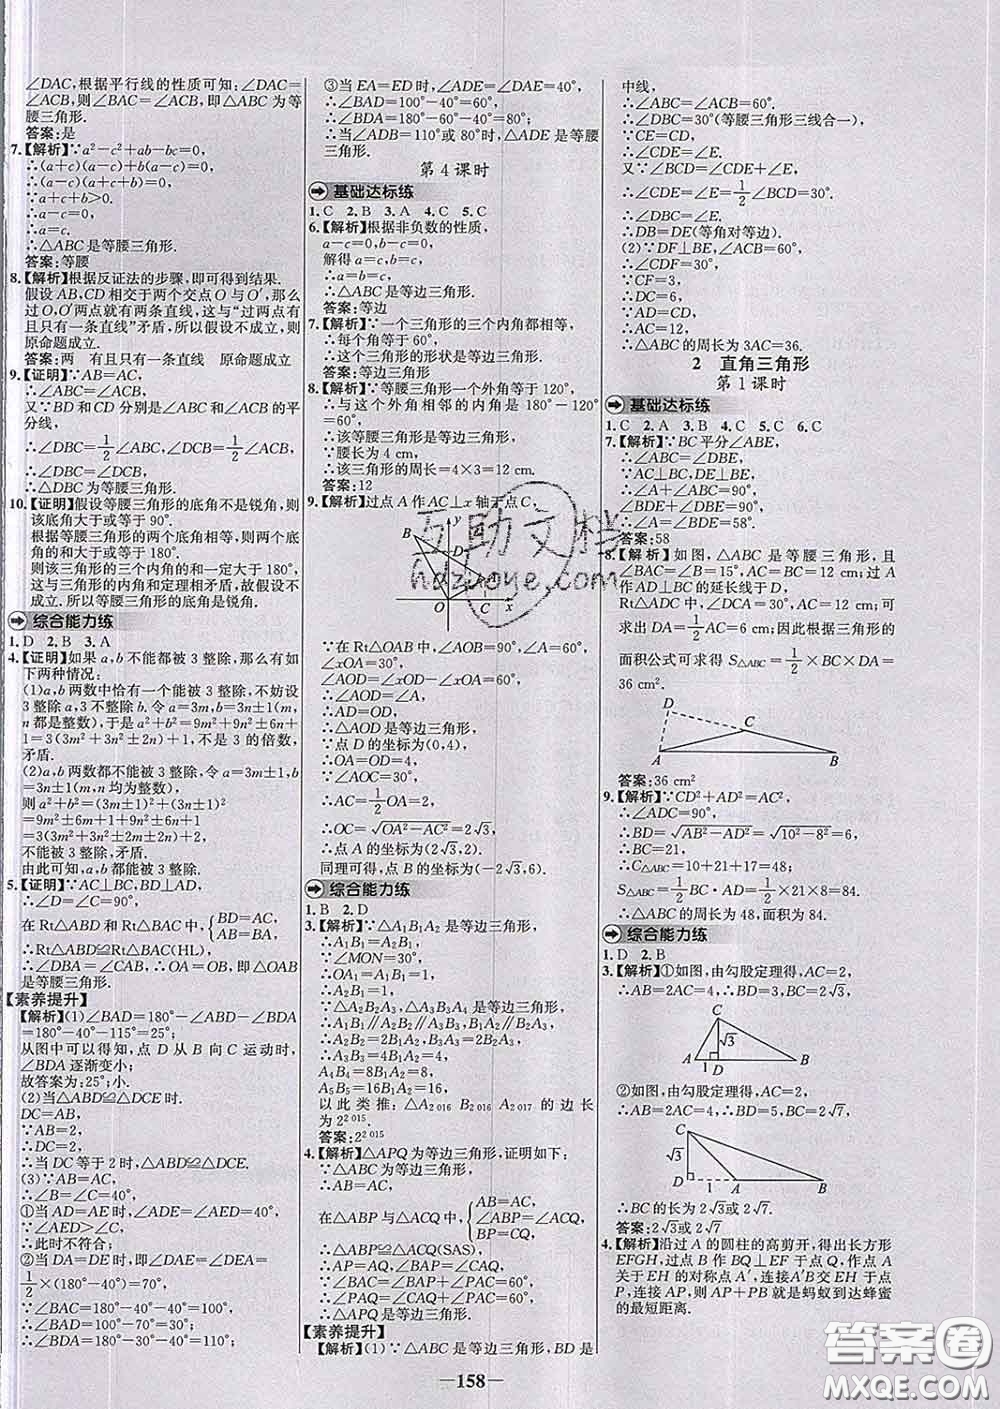 ∠DAC,根据平行线的性质可知:∠DAC=
∠ACB,则∠BAC=∠ACB,即△ABC为等
腰三角形.
答案:是
7.【解析】∵a²-c²+ab-bc=0,
∴(a+c)(a-c)+b(a-c)=0,
∴(a-c)(a+c+b)=0,
∵a+c+b>0.
∴a-c=0,
∴a=c.
∴△ABC是等腰三角形.
答案:等腰
8.【解析】根据反证法的步骤,即可得到结果.
假设AB,CD相交于两个交点O与O′,那么
过O,O′两点就有两条直线,这与“过两点有
且只有一条直线”矛盾,所以假设不成立,则
原命题成立.
答案:两 有且只有一条直线 原命题成立
9.【证明】∵AB=AC,
∴∠ABC=∠ACB,
又∵BD和CD分别是∠ABC和∠ACB的平
分线,
∴∠DBC=1/2∠ABC,∠DCB=1/2∠ACB,
∴∠DBC=∠DCB,
∴△DBC为等腰三角形.
10.【证明】假设等腰三角形的底角不是锐角,则
该底角大于或等于90°.
根据等腰三角形的两个底角相等,则两个底
角的和大于或等于180°.
则该三角形的三个内角的和一定大于180°,
这与三角形的内角和定理相矛盾,故假设不
成立.所以等腰三角形的底角是锐角.
综合能力练
1.D 2.B 3.A
4.【证明】如果a,b不能都被3整除,那么有如
下两种情况:
(1)a,b两数中恰有一个能被3整除,不妨设
3整除a,3不整除b.令a=3m,b=3n±1(m,
n都是整数),于是a²+b²=9m²+9n²±6n+
1=3(3m²+3n²±2n)+1,不是3的倍数,
矛盾.
(2)a,b两数都不能被3整除,令a=3m±1,
b=3n±1(m,n均为整数),
则a²+b²=(3m±1)²+(3n±1)²
=9m²±6m+1+9n²±6n+1
=3(3m²+3n²±2m±2n)+2,
不能被3整除,矛盾.
由此可知,a,b都能被3整除.
5.【证明】∵AC⊥BC,BD⊥AD,
∴∠D=∠C=90°,
在Rt△ABD和Rt△BAC中,{BD=AC, AB=BA.
∴Rt△ABD≌Rt△BAC(HL),
∴∠DBA=∠CAB,∴OA=OB,即△OAB
是等腰三角形.
【素养提升】
【解析】(1)∠BAD=180°-∠ABD-∠BDA
=180°-40°-115°=25°;
从图中可以得知,点D从B向C运动时,
∠BDA逐渐变小;
故答案为:25°;小.
(2)当△ABD≌△DCE时.
DC=AB,
∵AB=2,
∴DC=2,
∴当DC等于2时,△ABD≌△DCE.
(3)∵AB=AC,
∴∠B=∠C=40°,
①当AD=AE时,∠ADE=∠AED=40°,
∵∠AED>∠C,
∴此时不符合;
②当DA=DE时,即∠DAE=∠DEA=
1/2×(180°-40°)=70°,
∵∠BAC=180°-40°-40°=100°,
∴∠BAD=100°-70°=30°;
∴∠BDA=180°-30°-40°=110°;
③当EA=ED时,∠ADE=∠DAE=40°,
∴∠BAD=100°-40°=60°,
∴∠BDA=180°-60°-40°=80°;
∴当∠ADB=110°或80°时,△ADE是等腰
三角形.
第4课时
基础达标练
1.C 2.B 3.A 4.C 5.C
6.【解析】根据非负数的性质,
a-c=0,b-c=0,
解得a=c,b=c,
∴a=b=c,
∴△ABC是等边三角形.
答案:等边
7.【解析】∵一个三角形的三个内角都相等,
∴每个角等于60°,
∴这个三角形的形状是等边三角形.
答案:等边三角形
8.【解析】∵等腰三角形一个外角等于120°,
∴与这个外角相邻的内角是180°-120°
=60°,
∴该等腰三角形是等边三角形,
∵腰长为4 cm,
∴该三角形的周长=4×3=12 cm.
答案:12
9.【解析】过点A作AC⊥x轴于点C,
B y D O C x
∵在Rt△AOB中,∠AOB=90°,∠B=30°,
∠xOA=30°,
∴∠AOD=∠xOD-∠xOA=60°,
∴AD=OD,
∴△AOD是等边三角形,
∵点D的坐标为(0,4),
∴OA=OD=4,
∵∠AOC=30°,
∴AC=1/2OA=2,
∴OC=√(OA²-AC²)=2√3,
∴点A的坐标为(2√3,2).
同理可得,点B的坐标为(-2√3,6).
综合能力练
1.B 2.D
3.【解析】∵△A₁B₁A₂是等边三角形,
∴A₁B₁=A₂B₁,
∵∠MON=30°,
∴OA₁=A₁B₁=1,
∴A₂B₁=1,
∵△A₂B₂A₃,△A₃B₃A₄是等边三角形,
∴A₁B₁∥A₂B₂∥A₃B₃,B₁A₂∥B₂A₃,
∴A₂B₂=2B₁A₂,B₃A₃=2B₂A₃,
∴A₃B₃=4B₁A₂=4,
A₄B₄=8B₁A₂=8,
A₅B₅=16B₁A₂=16,
以此类推:△A₂₀₁₆B₂₀₁₆A₂₀₁₇的边长
为2²⁰¹⁵.
答案:2²⁰¹⁵
4.【解析】△APQ为等边三角形,证明如下:
∵△ABC为等边三角形,
∴AB=AC,
在△ABP与△ACQ中,{AB=AC, ∠ABP=∠ACQ, BP=CQ,
∴△ABP≌△ACQ(SAS),
∴AP=AQ,∠BAP=∠CAQ,
∵∠BAC=∠BAP+∠PAC=60°,
∴∠PAQ=∠CAQ+∠PAC=60°,
∴△APQ是等边三角形.
【素养提升】
【解析】(1)∵△ABC是等边三角形,BD是
中线,
∴∠ABC=∠ACB=60°,
∠DBC=30°(等腰三角形三线合一),
∵CE=CD,
∴∠CDE=∠E.
又∵∠BCD=∠CDE+∠E,
∴∠CDE=∠E=1/2∠BCD=30°.
∴∠DBC=∠E.
∴DB=DE(等角对等边).
(2)∵DF⊥BE,∠ACB=60°,
∴∠CDF=30°,
∵CF=3,
∴DC=6,
∵AD=CD,
∴AC=12,
∴△ABC的周长为3AC=36.
2 直角三角形
第1课时
基础达标练
1.C 2.A 3.B 4.C 5.C 6.C
7.【解析】∵BC平分∠ABE,
∴∠ABC=∠DBE,
∵AC⊥BC,DE⊥BE,
∴∠A+∠ABC=90°,
∠BDE+∠DBE=90°,
∴∠A=∠BDE=58°.
答案:58
8.【解析】如图,△ABC是等腰三角形,且
∠BAC=∠B=15°,AC=BC=12 cm;过A
作AD⊥BC的延长线于D,
Rt△ADC中,∠DCA=30°,AC=12 cm;可
求出DA=1/2AC=6 cm;因此根据三角形的
面积公式可求得S△ABC=1/2×BC×DA=
36 cm².
D C A B
答案:36 cm²
9.【解析】∵CD²+AD²=AC²,
∴∠ADC=90°,
∴BD=√(AB²-AD²)=√(10²-8²)=6,
∴BC=21,
∴C△ABC=10+21+17=48;
S△ABC=1/2BC·AD=1/2×21×8=84.
∴△ABC的周长为48,面积为84.
综合能力练
1.D 2.B
3.【解析】①如图,由勾股定理得,AC=2,
∴AB=2AC=4,∴BD=3,BC=2√3,
C √3 A 1 D B
②如图,由勾股定理得,AC=2,
∴AB=2AC=4,∴BD=5,BC=2√7,
C √3 D 1 A B
∴BC的长为2√3或2√7.
答案:2√3或2√7
4.【解析】沿过A的圆柱的高剪开,得出长方形
EFGH,过点B作BQ⊥EF于点Q,作点A
关于EH的对称点A′,连接A′B交EH于点
P,连接AP,则AP+PB就是蚂蚁到达蜂蜜
的最短距离.
互助文档
hdzuoye.com
—158—
答案圈
MXQE.COM